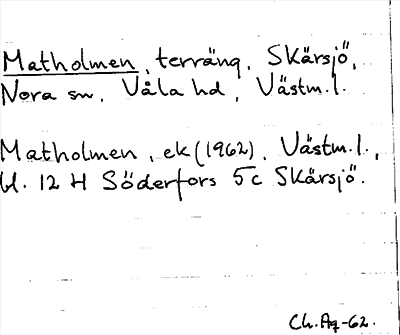 Matholmen, terräng, Skärsjö,
Nora sn, Våla hd, Västm.l.
Matholmen, ek (1962), Västm.l.,
bl. 12 H Söderfors 5c Skärsjö.
Ch. Ag-62.